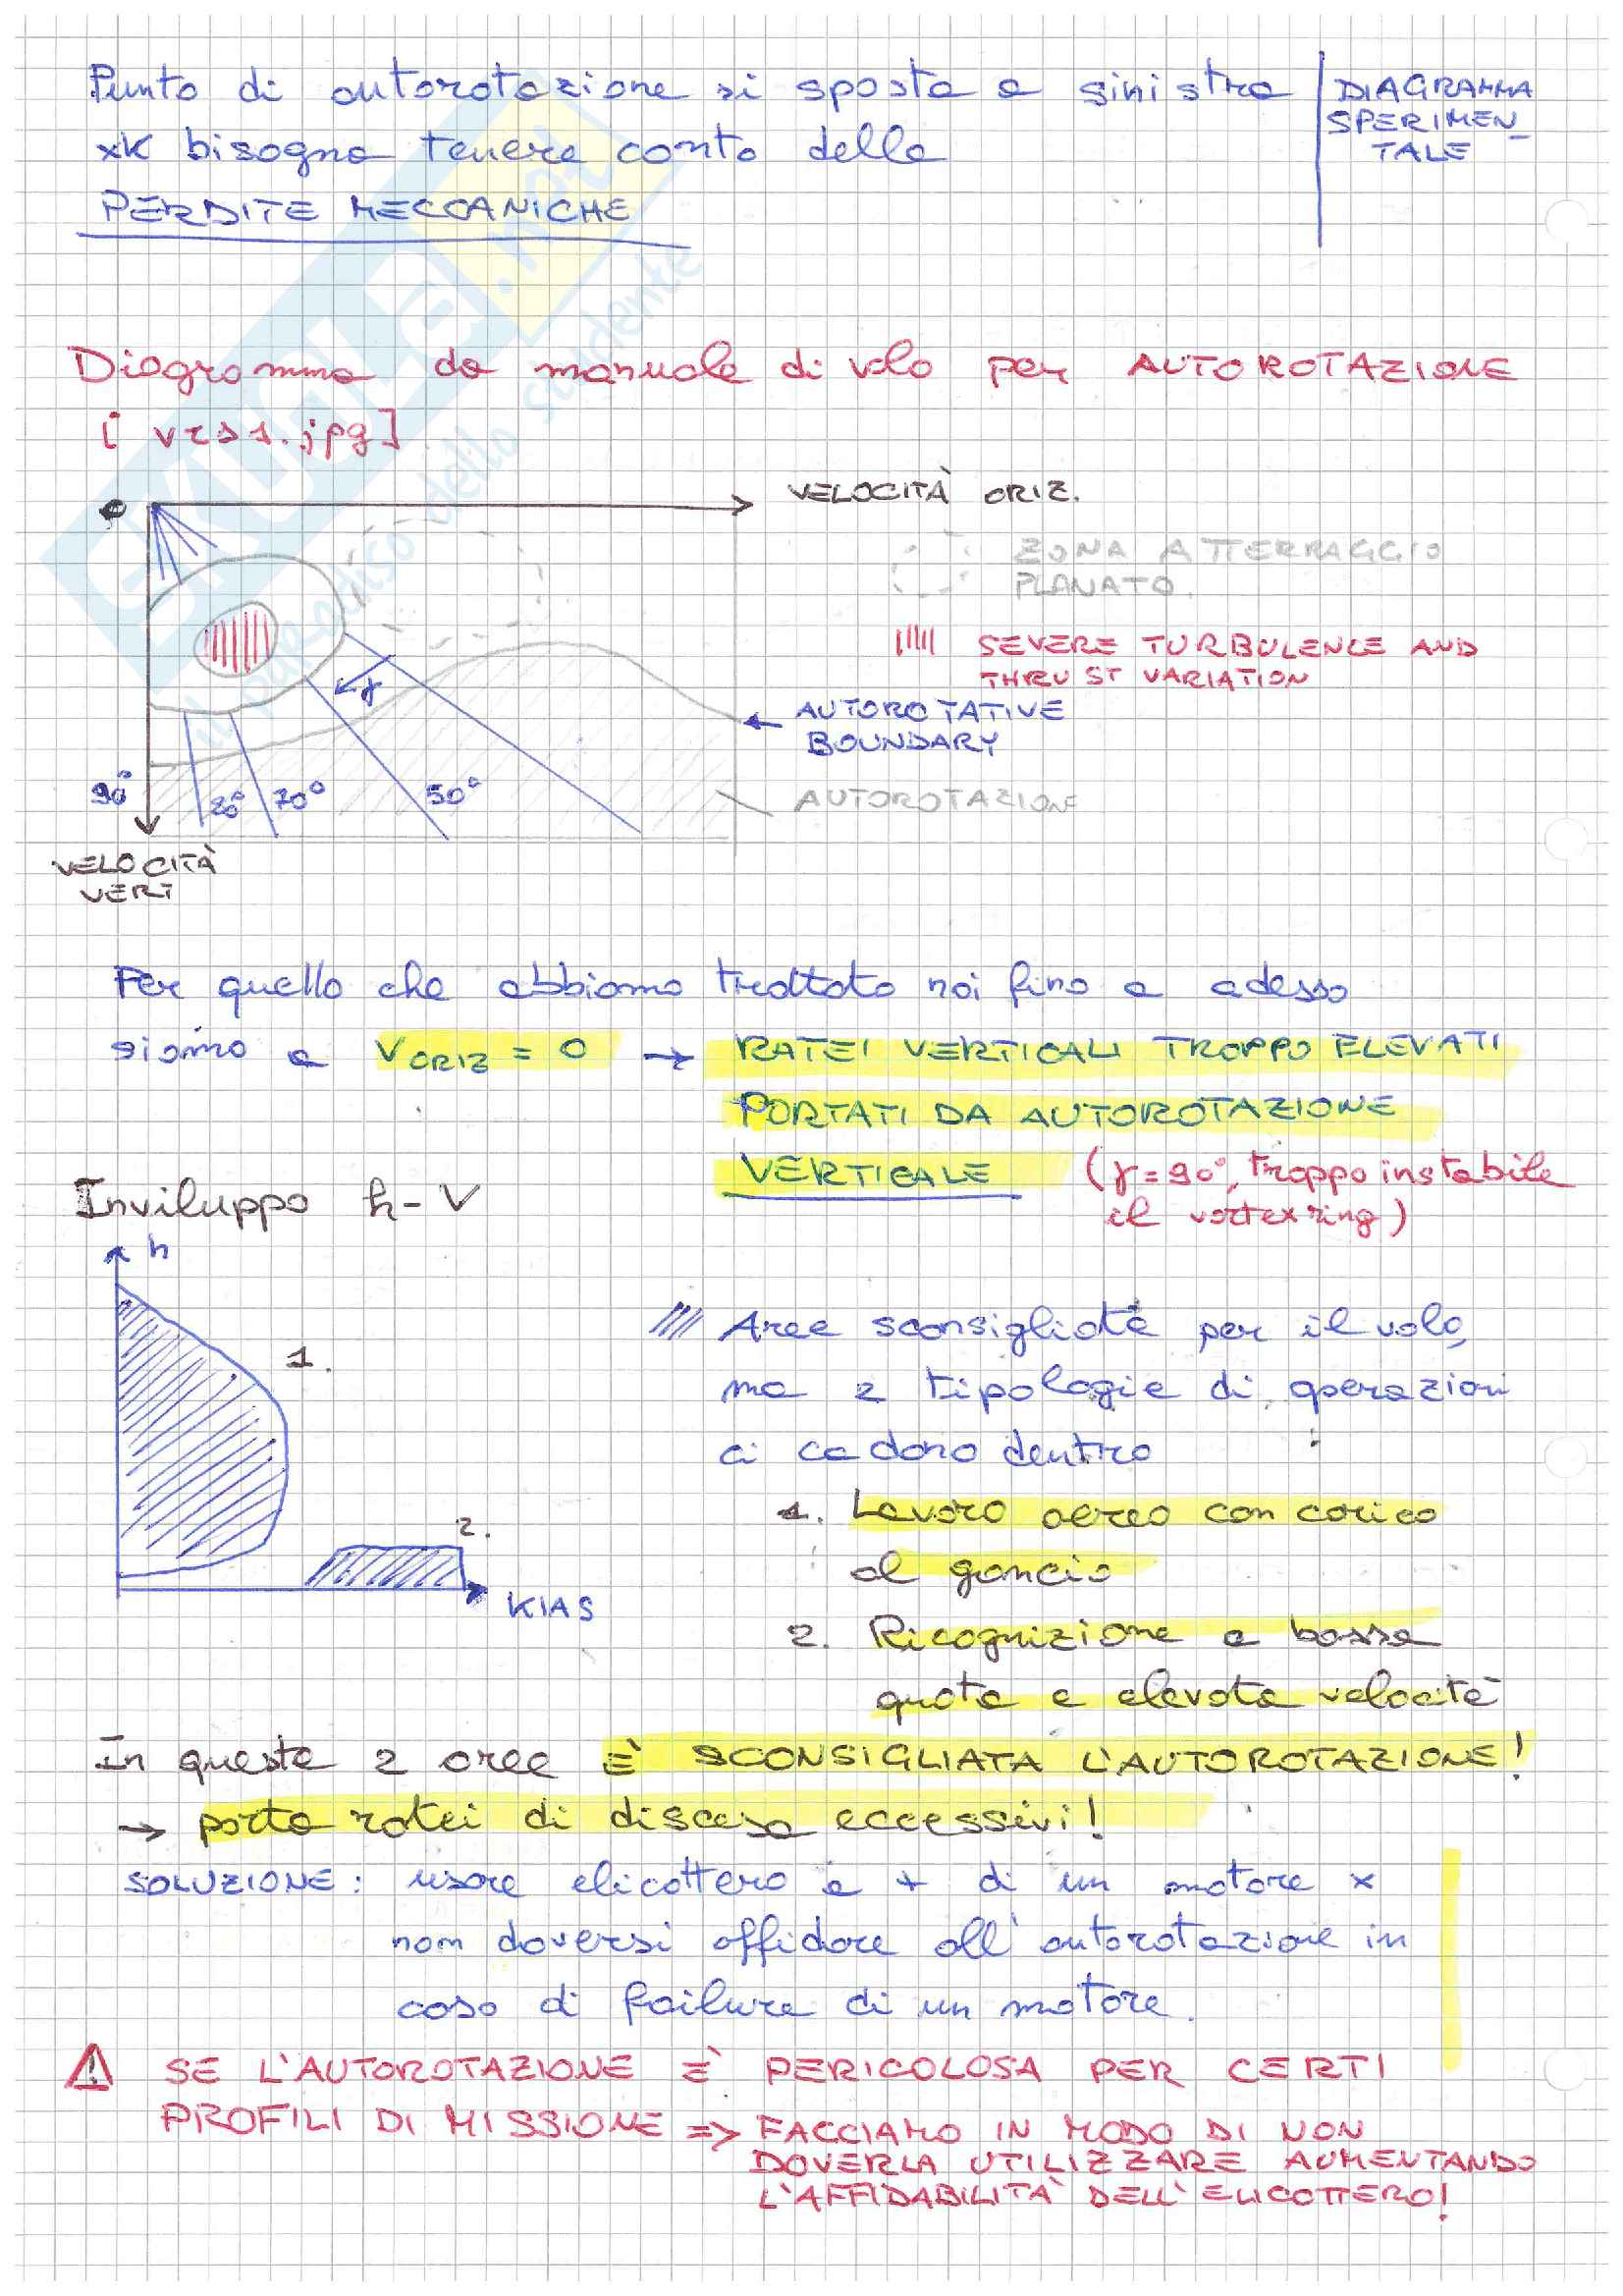 Punto di autorotazione si sposta a sinistra
xK bisogna tenere conto delle
PERDITE MECCANICHE
DIAGRAMMA
SPERIMEN_
TALE
Diagramma da manuale di volo per AUTOROTAZIONE
[ vrs1.jpg]
VELOCITÀ ORIZ.
ZONA ATTERRAGGIO
PLANATO.
SEVERE TURBULENCE AND
THRUST VARIATION
γ
AUTOROTATIVE
BOUNDARY
90° 80° 70° 50°
AUTOROTAZIONE
VELOCITÀ
VERT
Per quello che abbiamo trattato noi fino a adesso
siamo a VORIZ = 0 → RATEI VERTICALI TROPPO ELEVATI
PORTATI DA AUTOROTAZIONE
VERTICALE (γ=90°, troppo instabile
il vortex ring)
Inviluppo h-V
h
1.
2.
KIAS
Aree sconsigliate per il volo,
ma 2 tipologie di operazioni
ci cadono dentro
1. Lavoro aereo con carico
al gancio
2. Ricognizione a bassa
quota e elevata velocità
In queste 2 aree È SCONSIGLIATA L'AUTOROTAZIONE!
→ porta ratei di discesa eccessivi!
SOLUZIONE: usare elicottero a + di un motore x
non doversi affidare all'autorotazione in
caso di failure di un motore.
⚠ SE L'AUTOROTAZIONE È PERICOLOSA PER CERTI
PROFILI DI MISSIONE => FACCIAMO IN MODO DI NON
DOVERLA UTILIZZARE AUMENTANDO
L'AFFIDABILITÀ DELL'ELICOTTERO!
SKUOLA.net
il paradiso dello studente